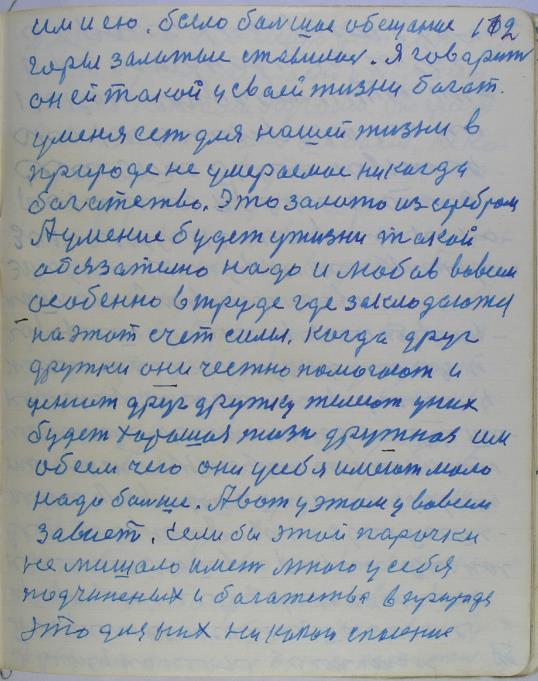 им и ею. было большое обещание 192
горы залатые ставилися. Я говарит
он ей такой у своей жизни богат.
у меня есть для нашей жизни в
природе не умераемое никогда
багатство. Это залото из серебром
А умение будет у жизни такой
обязательно надо и любов вовсем
особенно в труде где закладаются
на этот счет силы. Когда друг
дружки они честно помогают и
ценют друг дружку жалеют у них
будет хорошая жизн дружная им
обеем чего они у себя имеют мало
надо больше. А вот у этом у вовсем
завист. Если бы этой парочки
не мишало имет много у себя
подчиненых и багатства в природе
Это для них никакой спасение